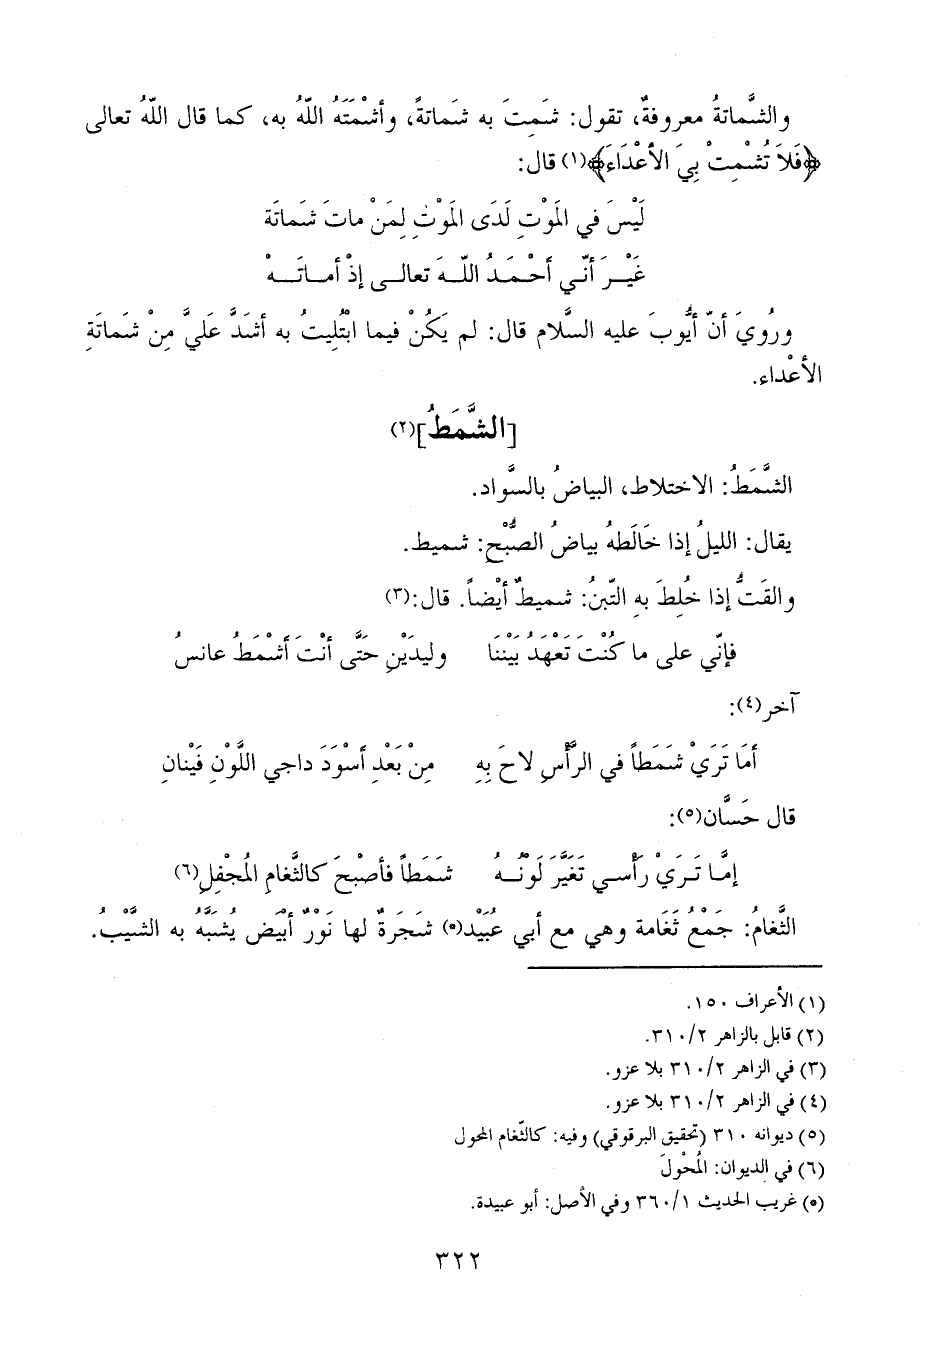 والشَّماتةُ معروفةٌ، تقول: شَمِتَ به شَماتةً، وأشْمَتَهُ اللّهُ به، كما قال اللّهُ تعالى
﴿فَلاَ تُشْمِتْ بِيَ الأَعْدَاءَ﴾(١) قال:
لَيْسَ في المَوْتِ لَدَى المَوْتِ لِمَنْ ماتَ شَماتَة
غَيْـرَ أنّـي أحْـمَـدُ اللّـهَ تعالـى إذْ أمـاتَـهْ
ورُويَ أنّ أيُّوبَ عليه السَّلام قال: لم يَكُنْ فيما ابْتُلِيتُ به أشَدَّ عَليَّ مِنْ شَماتَةِ
الأعْداء.
[الشَّمَطُ](٢)
الشَّمَطُ: الاختلاط، البياضُ بالسوَّاد.
يقال: الليلُ إذا خَالَطهُ بياضُ الصُّبْحِ: شميط.
والقَتُّ إذا خُلِطَ بِهِ التّبنُ: شميطٌ أيْضاً. قال:(٣)
فإنّي على ما كُنْتَ تَعْهَدُ بَيْنَنَا وليدَيْنِ حَتَّى أنْتَ أشْمَطُ عانسُ
آخر(٤):
أمَا تَرَيْ شَمَطاً في الرَّأْسِ لاحَ بِهِ مِنْ بَعْدِ أسْوَدَ داجي اللَّوْنِ فَينَانِ
قال حَسَّان(٥):
إمَّـا تَـرَيْ رَأْسـي تَغَيَّرَ لَوْنُـهُ شَمَطاً فأصْبْحَ كالثَّغامِ المُجْفِلِ(٦)
الثَّغامُ: جَمْعُ ثَغَامة وهي مع أبي عُبَيْد(٥) شَجَرةٌ لها نَوْرٌ أبْيَض يُشَبَّهُ به الشَّيْبُ.
(١) الأعراف ١٥٠.
(٢) قابل بالزاهر ٣١٠/٢.
(٣) في الزاهر ٣١٠/٢ بلا عزو.
(٤) في الزاهر ٣١٠/٢ بلا عزو.
(٥) ديوانه ٣١٠ (تحقيق البرقوقي) وفيه: كالثّغام المحول
(٦) في الديوان: المُحْولَ
(٥) غريب الحديث ٣٦٠/١ وفي الأصل: أبو عبيدة.
٣٢٢